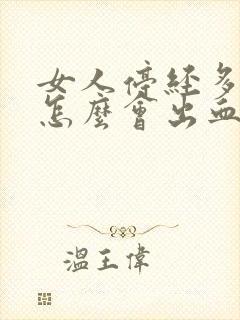 女人停經多
怎麼會出血
溫王偉